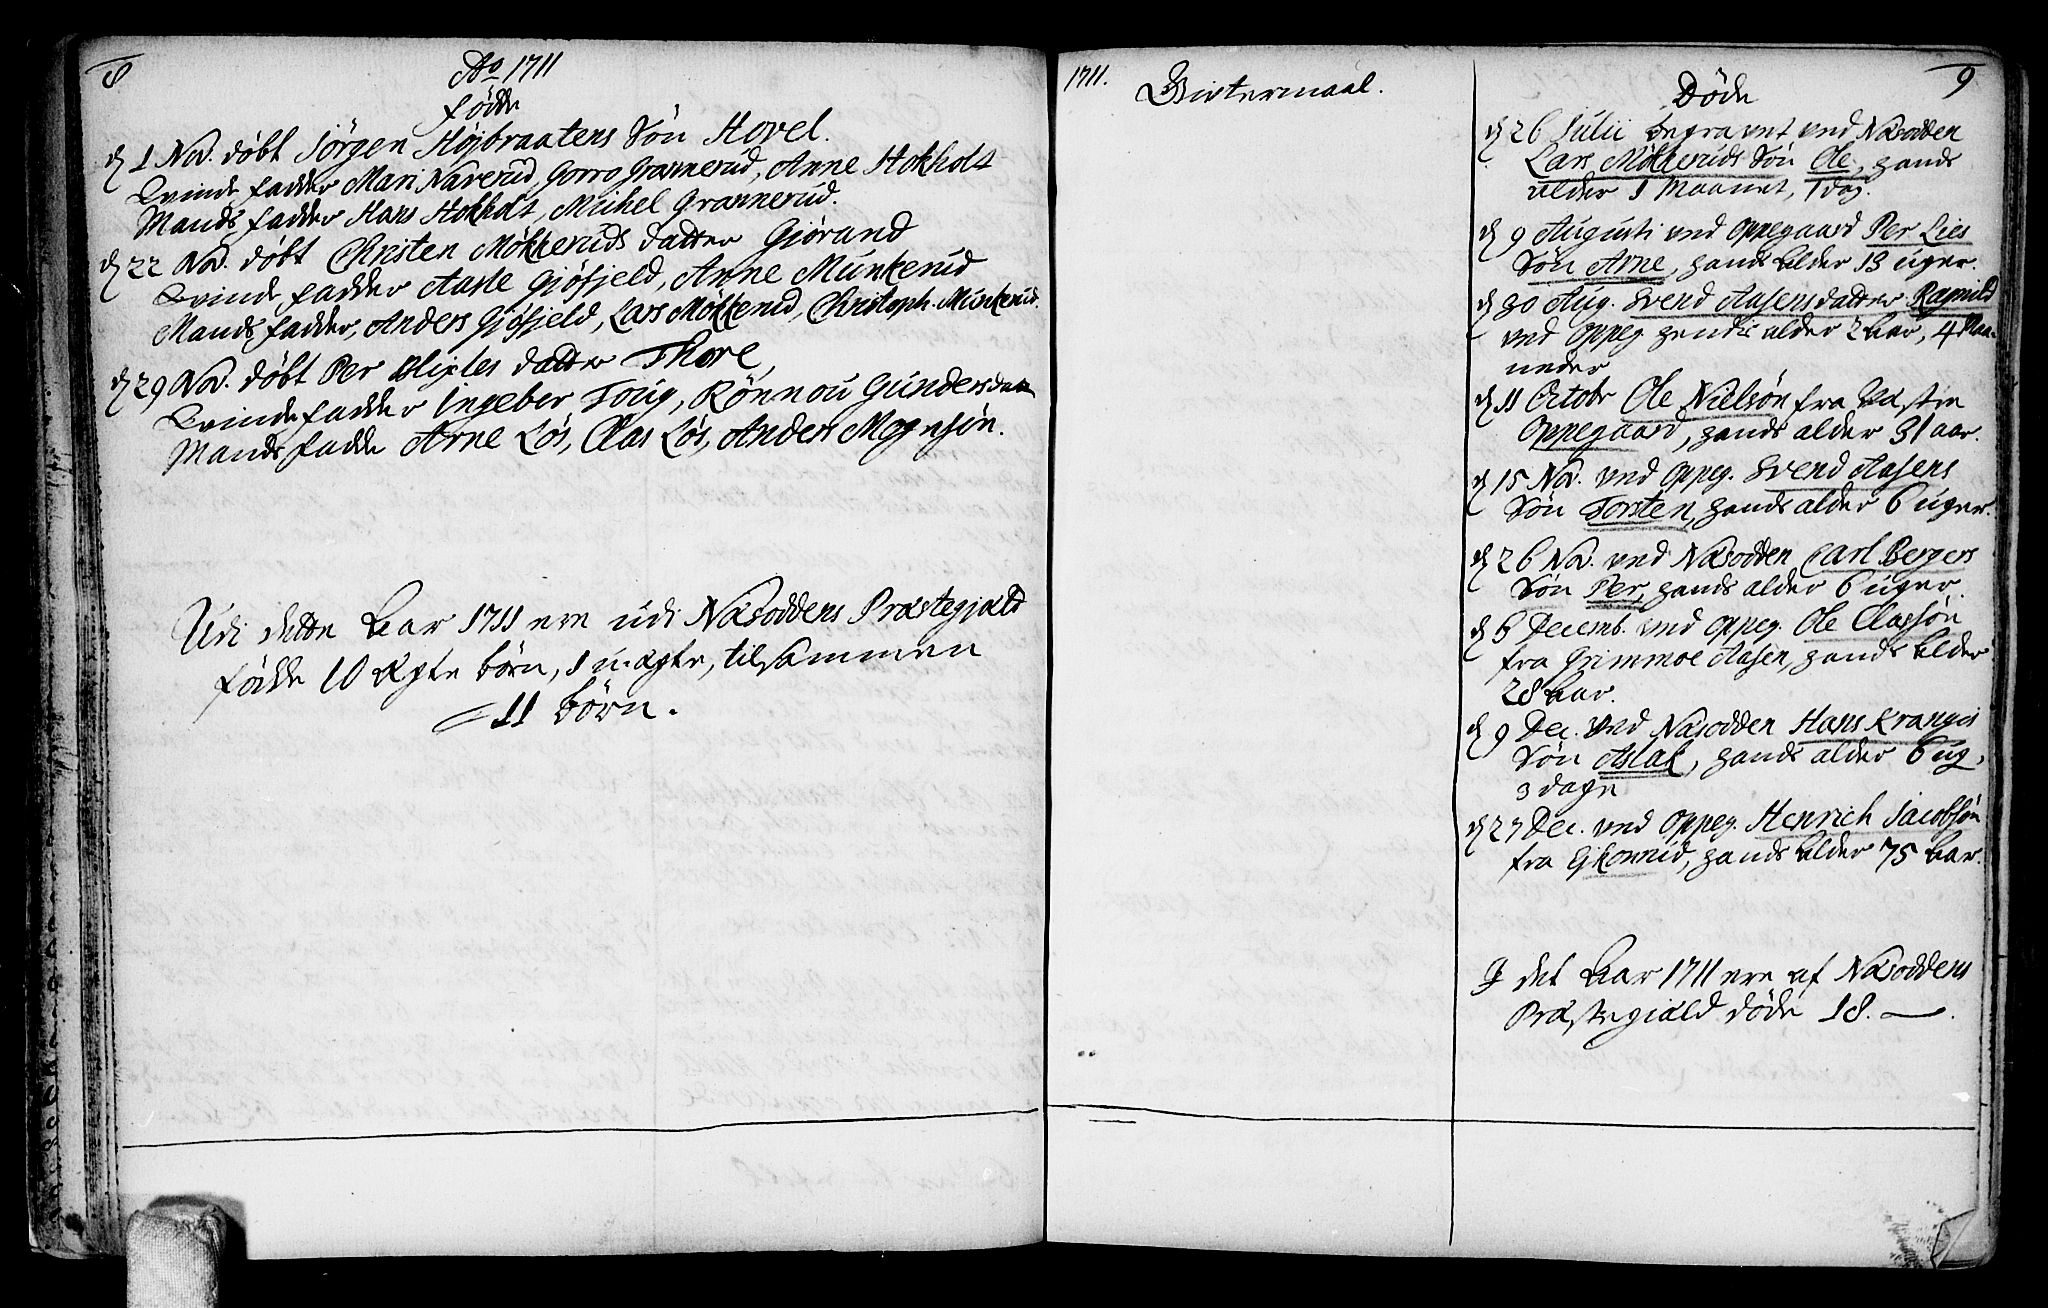 8
Ao 1711
Födde
d 1 Nov. döbt Jörgen Höjbraatens Sön Hovel.
Qvinde fadder Mari Naverud, Goro Grannerud, Anne Hokholt
Mands fadder Hans Hokholt, Michel Grannerud.
d 22 Nov. döbt Christen Mökkeruds datter Gjörand
Qvinde fadder Aaste Gjöfjeld, Anne Munkerud
Mands fadder, Anders Gjöfjeld, Lars Mökkerud, Christoph. Munkerud.
d 29 Nov. döbt Per Blixles datter Thore,
Qvinde fadder Ingebor Toug, Rönnou Gundersdatr
Mands fadde Arne Lös, Clas Lös, Anders Mognsön.
Udi dette Aar 1711 ere udi Næsoddens Præstegjæld
födde 10 Ægte börn, 1 u-ægte, tilsammen
= 11 börn.
1711.
Givtermaal.
9
Döde
d 26 Julii begravet ved Næsodden
Lars Mökkeruds Sön Ole, hands
alder 1 Maanet, 1 dag.
d 9 Augusti ved Oppegaard Per Lies
Sön Arne, hands alder 13 uger.
d 30 Aug. Svend Aasens datter Ragnild
ved Oppeg hendis alder 2 Aar, 4 Maa-
neder
d 11 Octobr Ole Nielsön fra Vestre
Oppegaard, hands alder 31 aar.
d 15 Nov. ved Oppeg. Svend Aasens
Sön Torsten, hands alder 6 uger.
d 26 Nov. ved Næsodden Carl Bergers
Sön Per, hands alder 6 uger.
d 6 Decemb. ved Oppeg. Ole Classön
fra Grimmoe Aasen, hands alder
28 Aar.
d 9 Dec. ved Næsodden Hans Krangis
Sön Aslak, hands alder 6 ug,
3 dage
d 27 Dec. ved Oppeg. Henrich Jacobsön
fra Ejkornrud, hands alder 75 Aar.
I det Aar 1711 ere af Næsoddens
Præstegiæld döde 18.